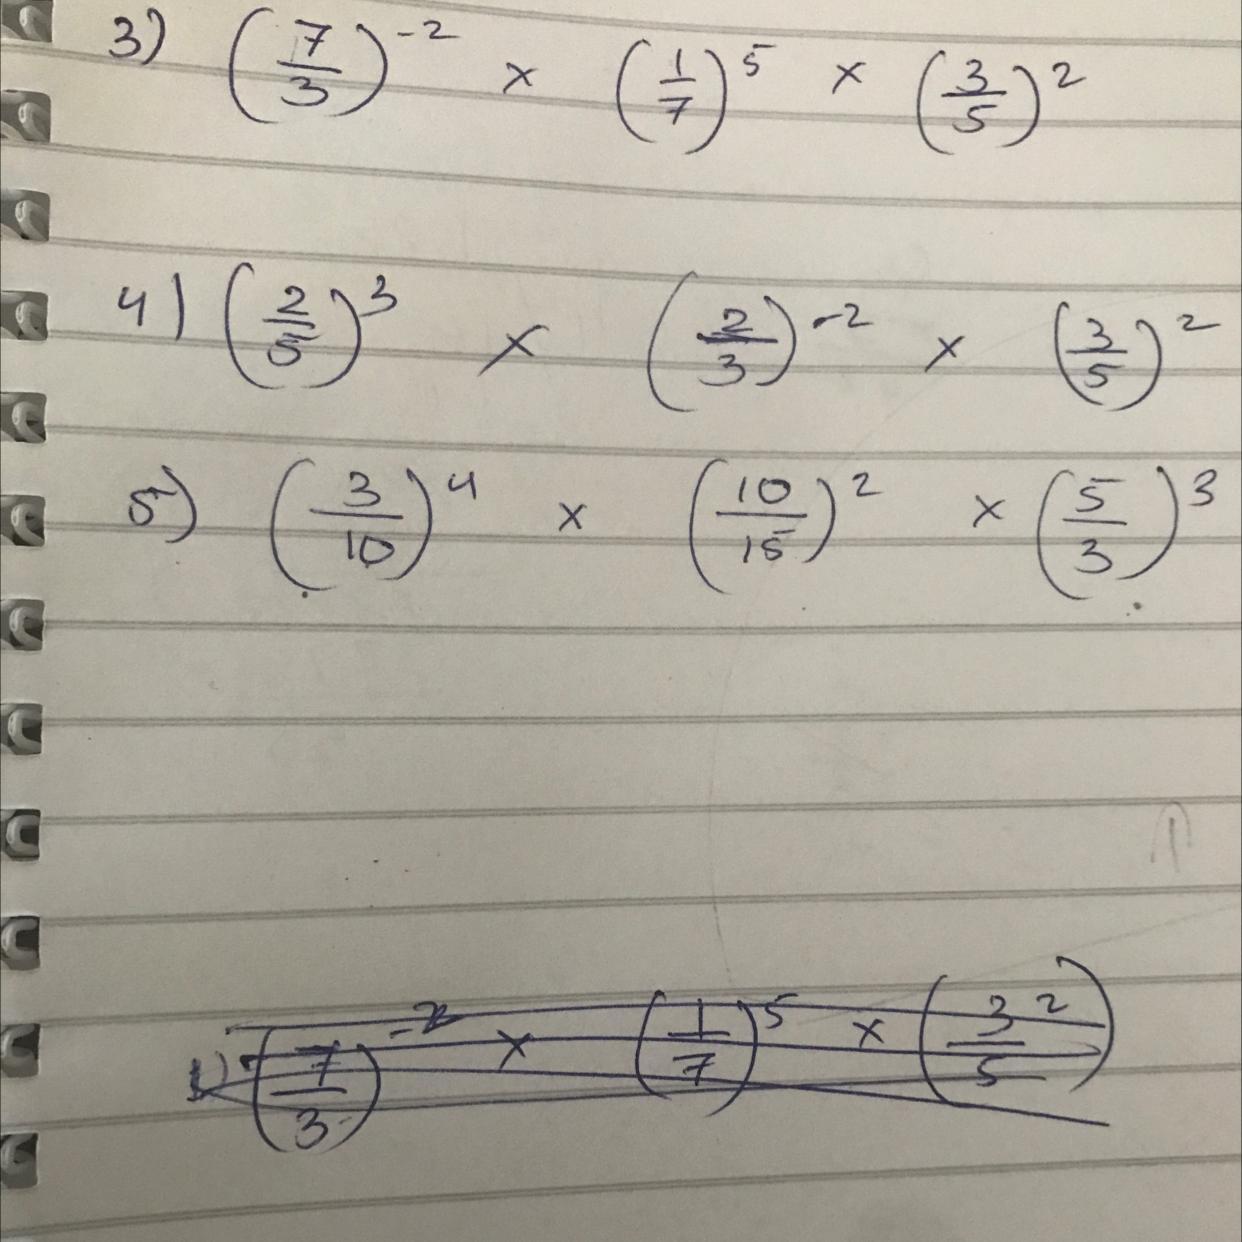 3) (7/3)^-2 × (1/7)^5 × (3/5)^2
4) (2/5)^3 × (2/3)^-2 × (3/5)^2
5) (3/10)^4 × (10/15)^2 × (5/3)^3
(7/3)^-2 × (1/7)^5 × (3^2/5)